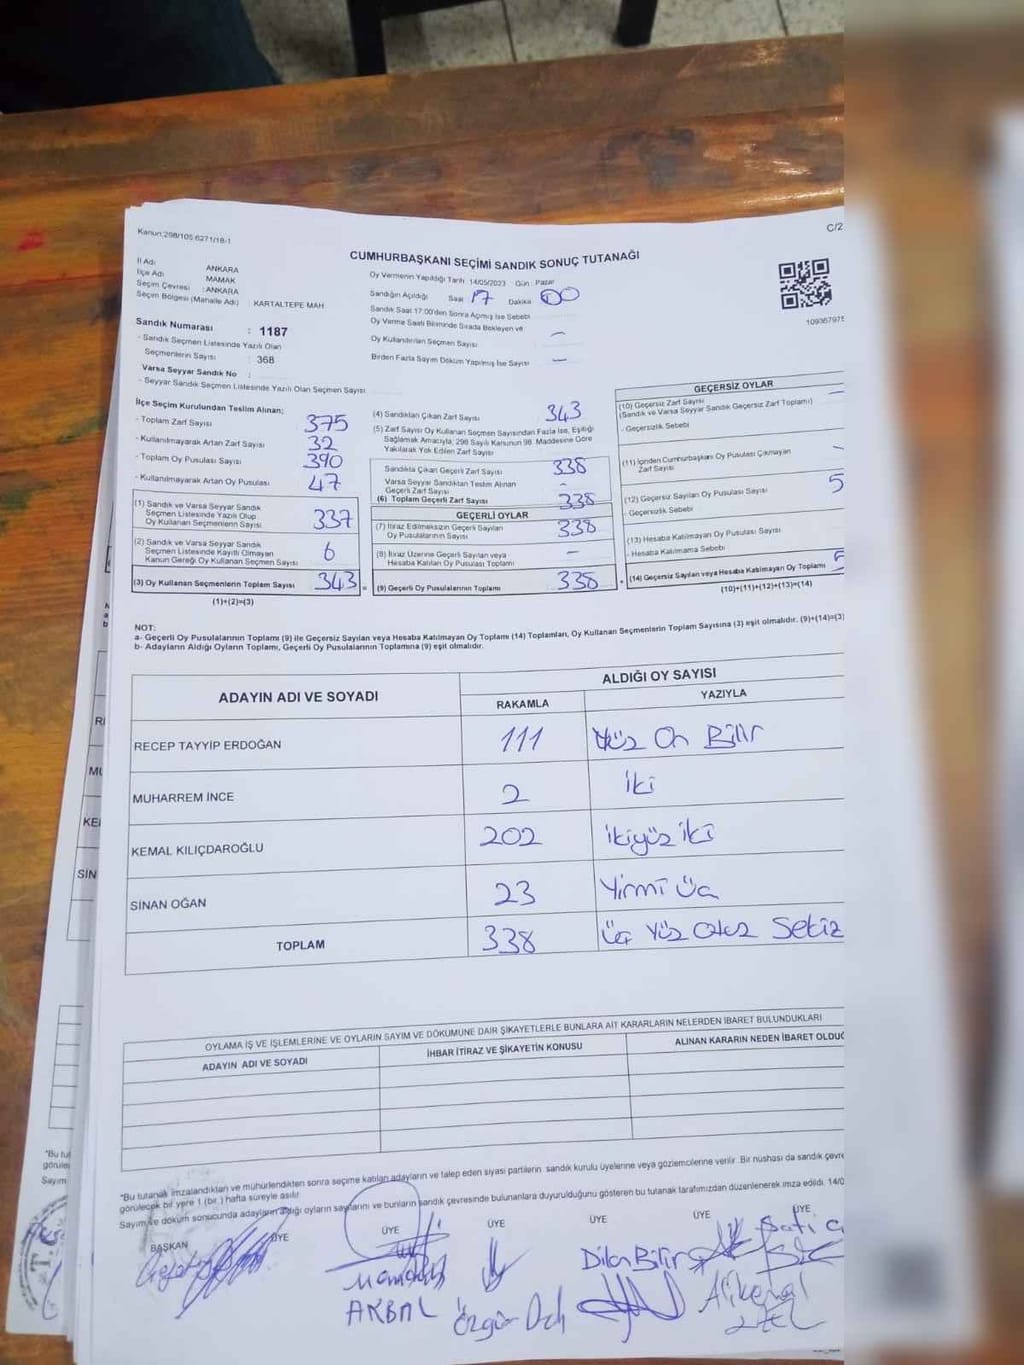 Kanun:298/105.6271/18-1
C/2
CUMHURBAŞKANI SEÇİMİ SANDIK SONUÇ TUTANAĞI
İl Adı ANKARA
İlçe Adı MAMAK
Seçim Çevresi : ANKARA
Seçim Bölgesi (Mahalle Adı) : KARTALTEPE MAH
Oy Vermenin Yapıldığı Tarih 14/05/2023 Gün : Pazar
Sandığın Açıldığı Saat 17 Dakika 00
Sandık Saat 17.00'den Sonra Açmış İse Sebebi
Oy Verme Saati Bitiminde Sırada Bekleyen ve
Oy Kullandırılan Seçmen Sayısı –
Birden Fazla Sayım Döküm Yapılmış İse Sayısı –
10936797
Sandık Numarası : 1187
- Sandık Seçmen Listesinde Yazılı Olan
Seçmenlerin Sayısı : 368
Varsa Seyyar Sandık No :
- Seyyar Sandık Seçmen Listesinde Yazılı Olan Seçmen Sayısı
İlçe Seçim Kurulundan Teslim Alınan;
- Toplam Zarf Sayısı 375
- Kullanılmayarak Artan Zarf Sayısı 32
- Toplam Oy Pusulası Sayısı 390
- Kullanılmayarak Artan Oy Pusulası 47
(1) Sandık ve Varsa Seyyar Sandık
Seçmen Listesinde Yazılı Olup
Oy Kullanan Seçmenlerin Sayısı 337
(2) Sandık ve Varsa Seyyar Sandık
Seçmen Listesinde Kayıtlı Olmayan
Kanun Gereği Oy Kullanan Seçmen Sayısı 6
(3) Oy Kullanan Seçmenlerin Toplam Sayısı 343 =
(1)+(2)=(3)
(4) Sandıktan Çıkan Zarf Sayısı 343
(5) Zarf Sayısı Oy Kullanan Seçmen Sayısından Fazla İse, Eşitliği
Sağlamak Amacıyla; 298 Sayılı Kanunun 98. Maddesine Göre
Yakılarak Yok Edilen Zarf Sayısı
Sandıkta Çıkan Geçerli Zarf Sayısı 338
Varsa Seyyar Sandıktan Teslim Alınan
Geçerli Zarf Sayısı -
(6) Toplam Geçerli Zarf Sayısı 338
GEÇERLİ OYLAR
(7) İtiraz Edilmeksizin Geçerli Sayılan
Oy Pusulalarının Sayısı 338
(8) İtiraz Üzerine Geçerli Sayılan veya
Hesaba Katılan Oy Pusulası Toplamı –
(9) Geçerli Oy Pusulalarının Toplamı 338 +
GEÇERSİZ OYLAR
(10) Geçersiz Zarf Sayısı
(Sandık ve Varsa Seyyar Sandık Geçersiz Zarf Toplamı) –
- Geçersizlik Sebebi
(11) İçinden Cumhurbaşkanı Oy Pusulası Çıkmayan
Zarf Sayısı –
(12) Geçersiz Sayılan Oy Pusulası Sayısı 5
- Geçersizlik Sebebi
(13) Hesaba Katılmayan Oy Pusulası Sayısı
- Hesaba Katılmama Sebebi
(14) Geçersiz Sayılan veya Hesaba Katılmayan Oy Toplamı 5
(10)+(11)+(12)+(13)=(14)
NOT:
a- Geçerli Oy Pusulalarının Toplamı (9) ile Geçersiz Sayılan veya Hesaba Katılmayan Oy Toplamı (14) Toplamları, Oy Kullanan Seçmenlerin Toplam Sayısına (3) eşit olmalıdır. (9)+(14)=(3)
b- Adayların Aldığı Oyların Toplamı, Geçerli Oy Pusulalarının Toplamına (9) eşit olmalıdır.
ADAYIN ADI VE SOYADI
ALDIĞI OY SAYISI
RAKAMLA YAZIYLA
RECEP TAYYİP ERDOĞAN 111 Yüz On Bir
MUHARREM İNCE 2 İki
KEMAL KILIÇDAROĞLU 202 İkiyüz iki
SİNAN OĞAN 23 Yirmi Üç
TOPLAM 338 Üç Yüz Otuz Sekiz
OYLAMA İŞ VE İŞLEMLERİNE VE OYLARIN SAYIM VE DÖKÜMÜNE DAİR ŞİKAYETLERLE BUNLARA AİT KARARLARIN NELERDEN İBARET BULUNDUKLARI
ADAYIN ADI VE SOYADI
İHBAR İTİRAZ VE ŞİKAYETİN KONUSU
ALINAN KARARIN NEDEN İBARET OLDUĞ
"Bu tutanak imzalandıktan ve mühürlendikten sonra seçime katılan adayların ve talep eden siyasi partilerin sandık kurulu üyelerine veya gözlemcilerine verilir. Bir nüshası da sandık çevre
görülecek bir yere 1 (bir) hafta süreyle asılır
Sayım ve döküm sonucunda adayların aldığı oyların sayılarını ve bunların sandık çevresinde bulunanlara duyurulduğunu gösteren bu tutanak tarafımızdan düzenlenerek imza edildi. 14/0
BAŞKAN ÜYE ÜYE ÜYE ÜYE ÜYE ÜYE
AKBAL
Özgür
Dila Bilir
Alikemal